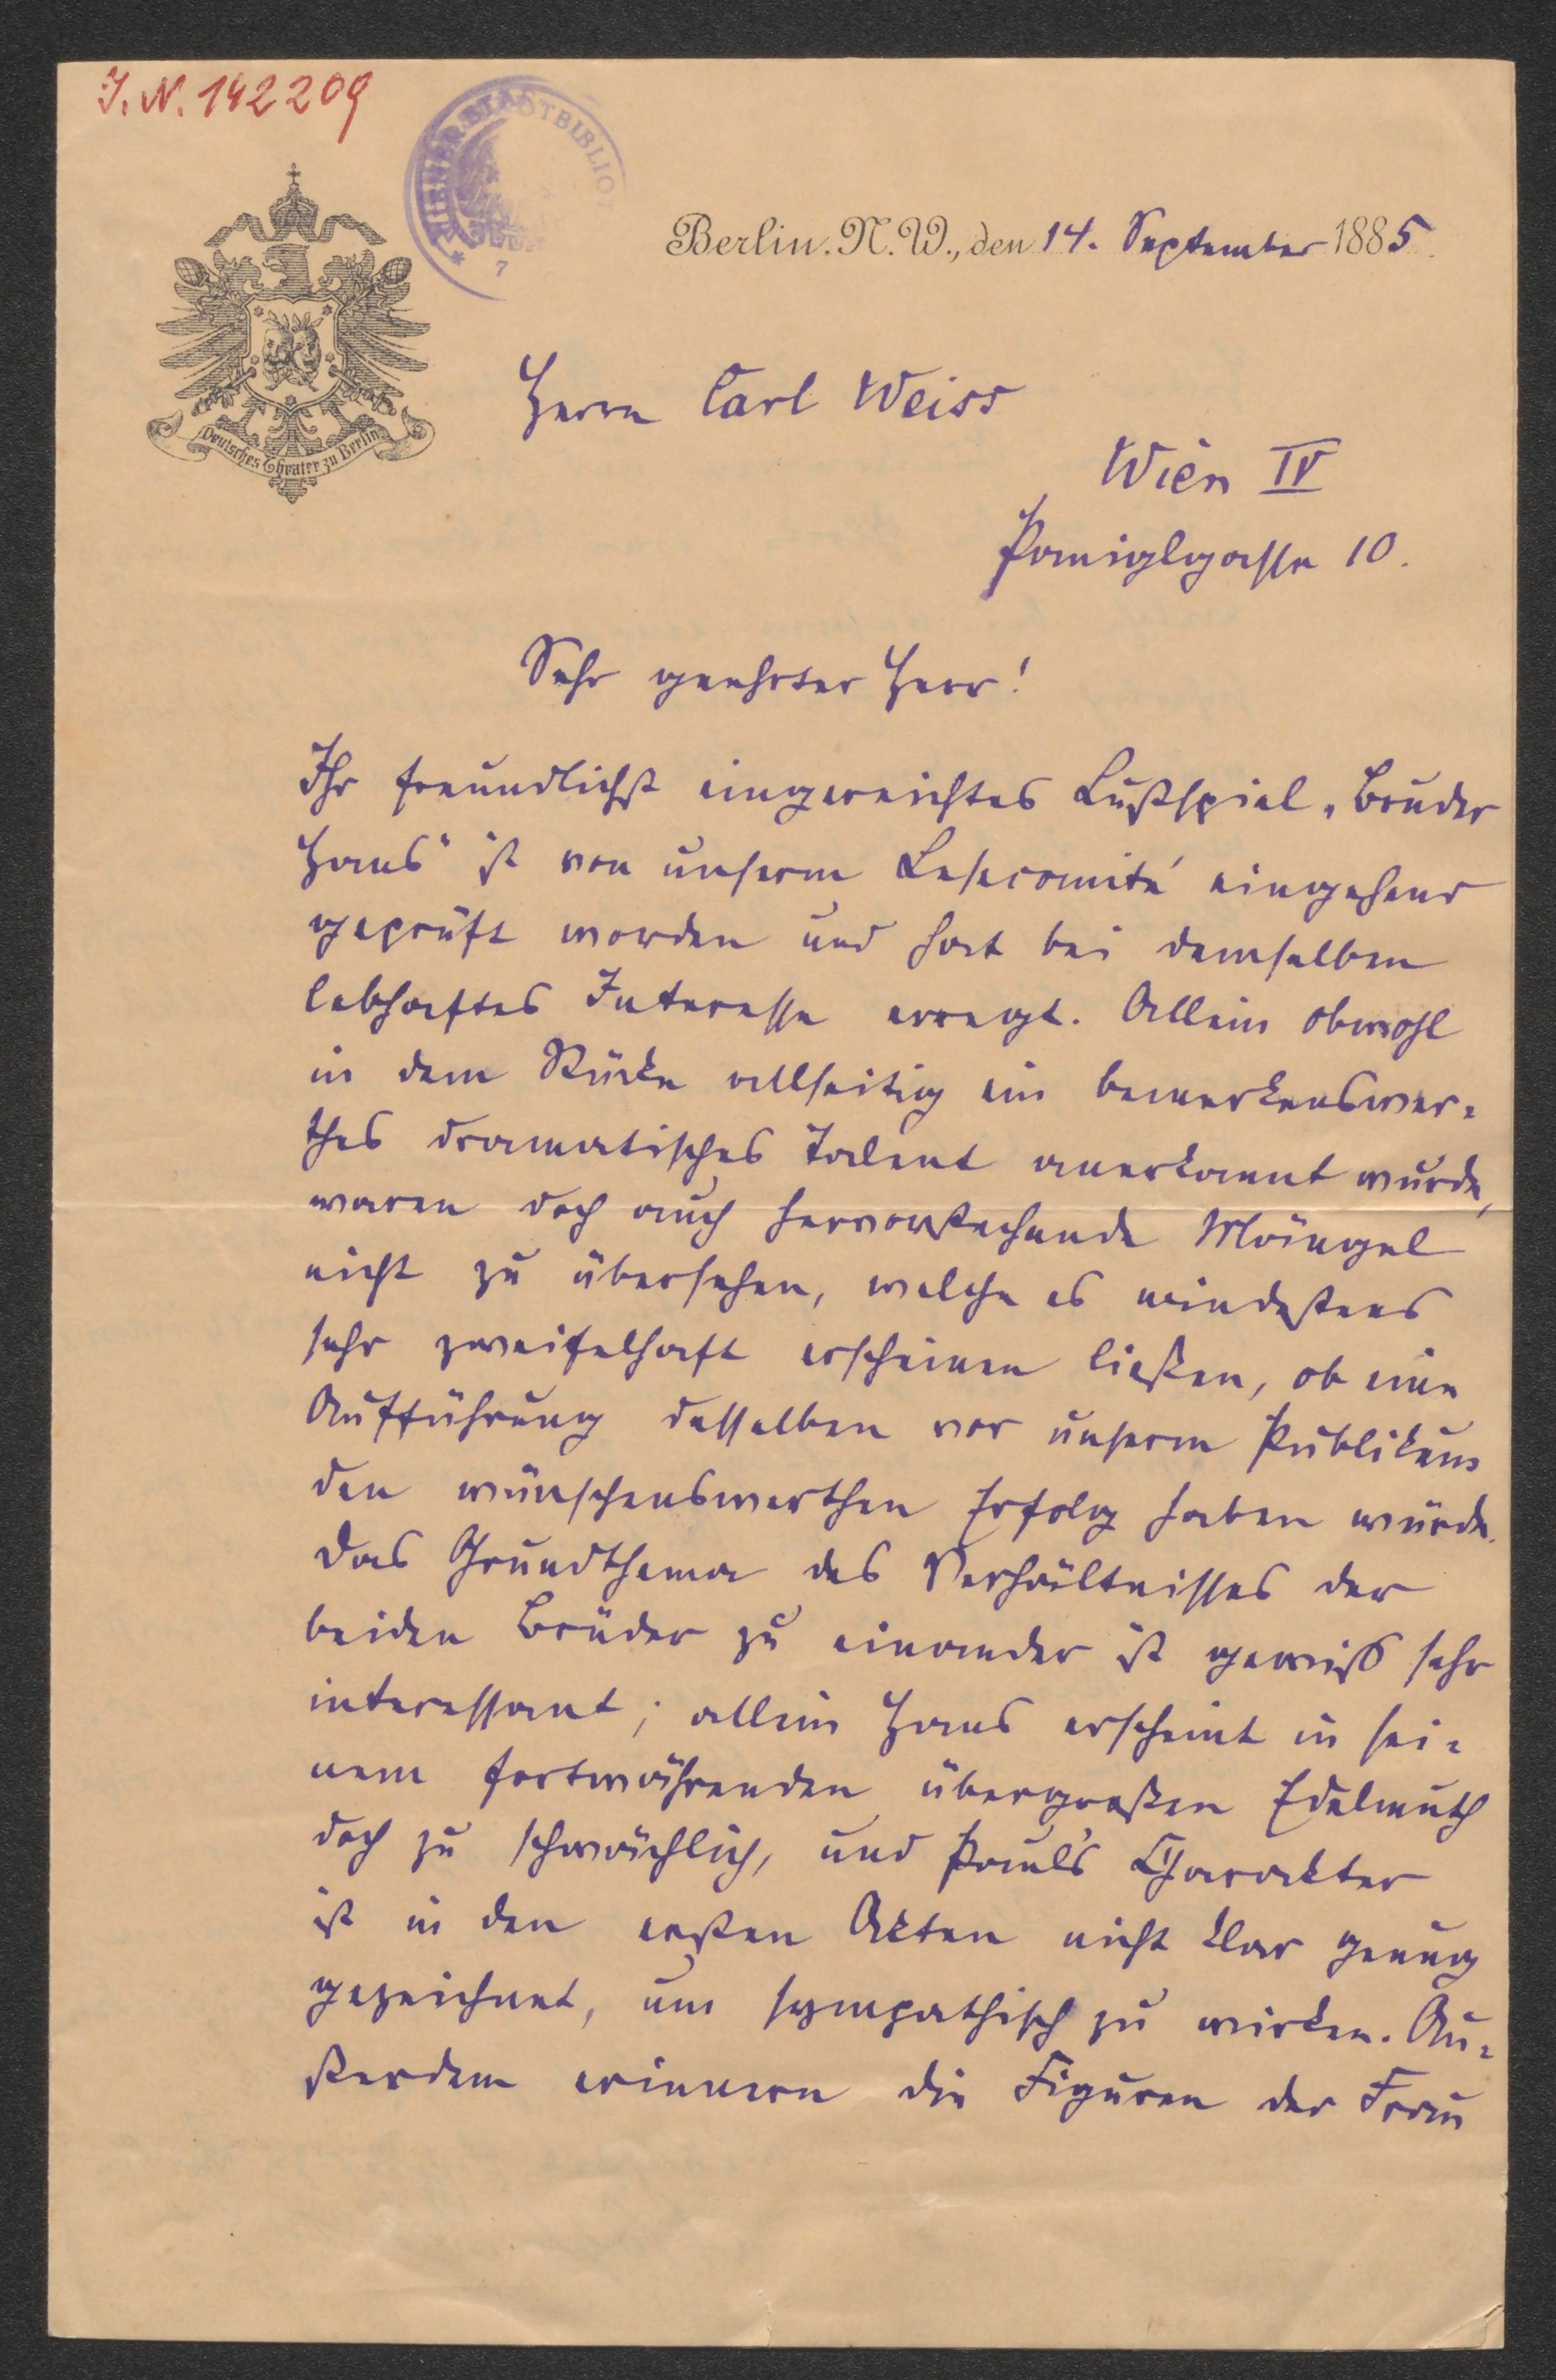 J. N. 142209
WIENER STADTBIBLIO
7
Deutsches Theater zu Berlin
Berlin. N. W., den 14. September 1885.
Herrn Carl Weiss
Wien IV
Paniglgasse 10.
Sehr geehrter Herr!
Ihr freundlichst eingereichtes Lustspiel „Bruder
Hans" ist von unserm Lesecomité eingehend
geprüft worden und hat bei demselben
lebhaftes Interesse erregt. Allein obwohl
in dem Stücke allseitig ein bemerkenswer-
thes dramatisches Talent anerkannt wurde,
waren doch auch hervorstechende Mängel
nicht zu übersehen, welche es mindestens
sehr zweifelhaft erscheinen ließen, ob eine
Aufführung desselben vor unserm Publikum
den wünschenswerthen Erfolg haben würde.
Das Grundthema des Verhältnisses der
beiden Brüder zu einander ist gewiß sehr
interessant; allein Hans erscheint in sei-
nem fortwährenden übergroßen Edelmuth
doch zu schwächlich, und Paul's Charakter
ist in den ersten Akten nicht klar genug
gezeichnet, um sympathisch zu wirken. Au-
ßerdem erinnern die Figuren der Frau